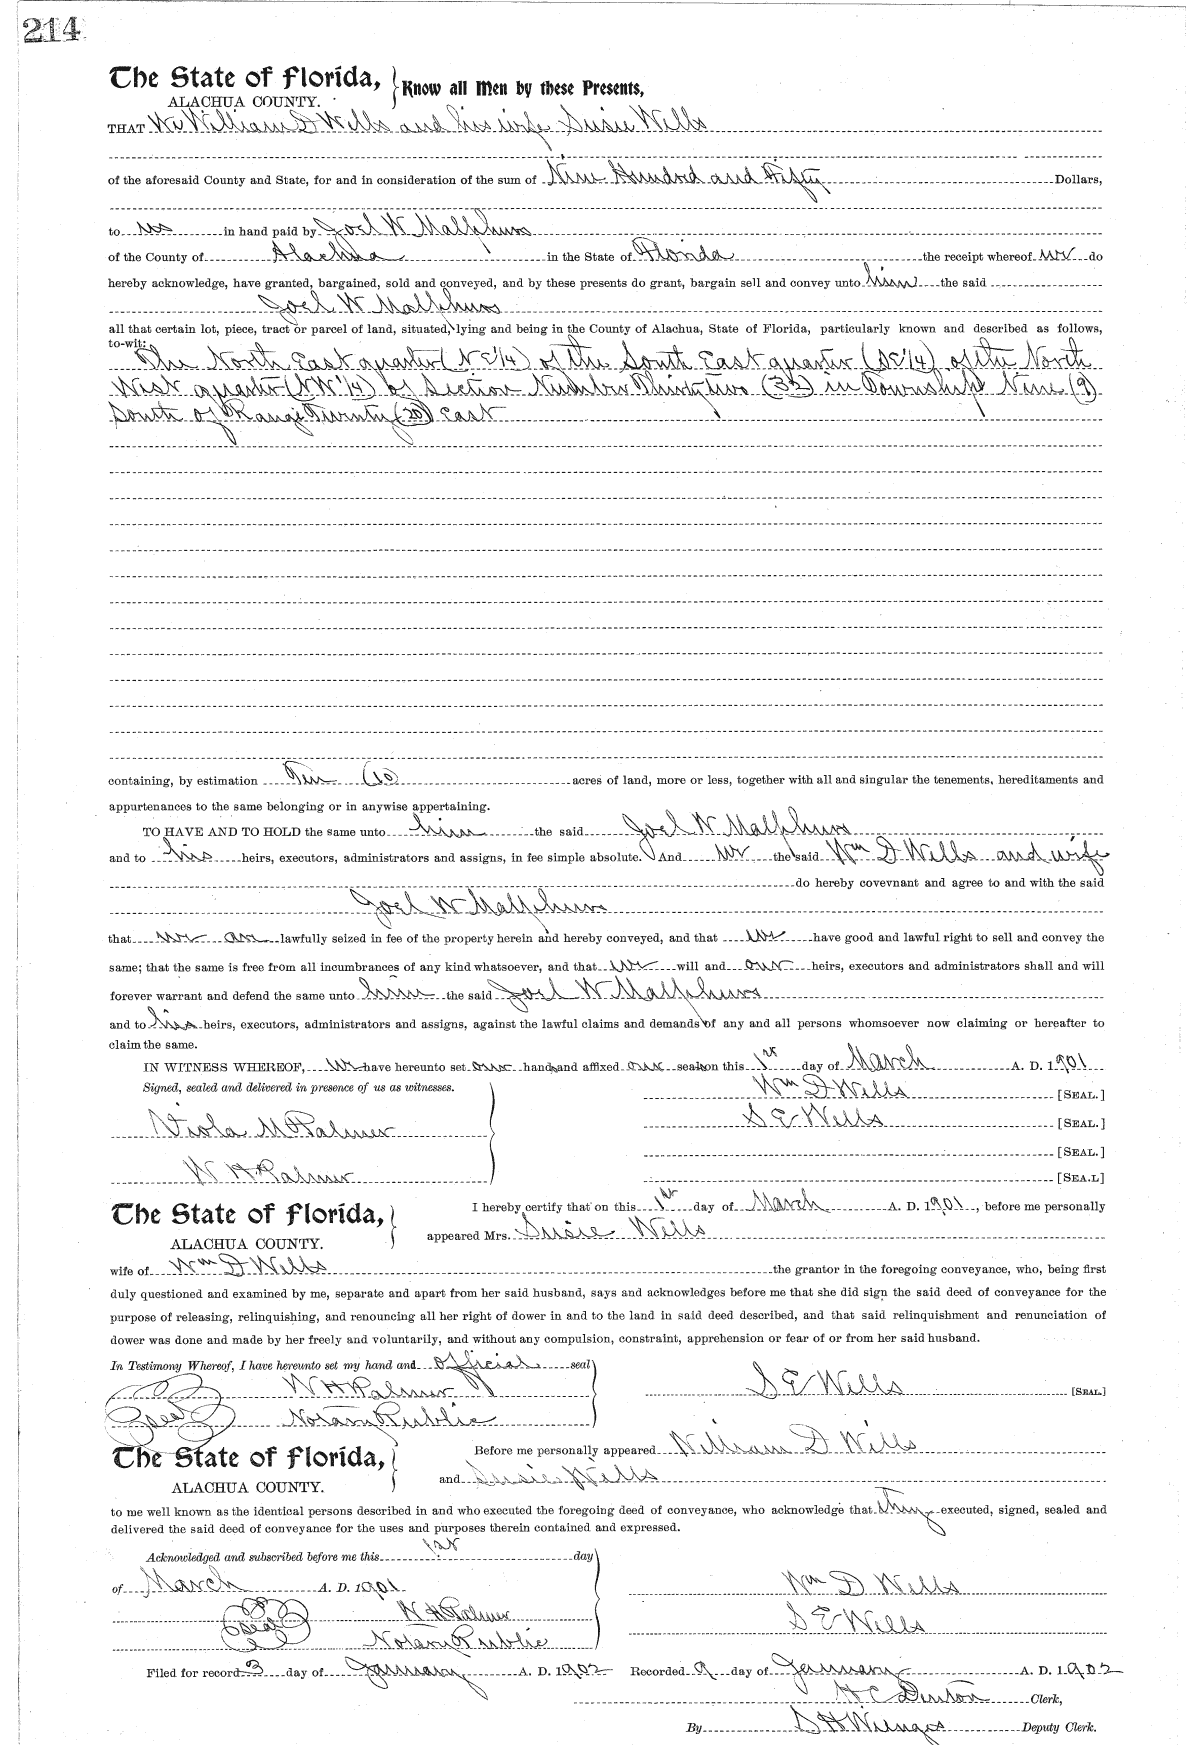 214
The State of Florida,
ALACHUA COUNTY.
Know all Men by these Presents,
THAT We William D Wells and his wife Susie Wells
of the aforesaid County and State, for and in consideration of the sum of Nine Hundred and Fifty Dollars,
to us in hand paid by Joel W Malphurs
of the County of Alachua in the State of Florida the receipt whereof we do
hereby acknowledge, have granted, bargained, sold and conveyed, and by these presents do grant, bargain sell and convey unto him the said
Joel W Malphurs
all that certain lot, piece, tract or parcel of land, situated, lying and being in the County of Alachua, State of Florida, particularly known and described as follows,
to-wit:
The North East quarter (NE 1/4) of the South East quarter (SE 1/4) of the North
West quarter (NW 1/4) of Section Number Thirty two (32) in Township Nine (9)
South of Range Twenty (20) East
containing, by estimation Ten (10) acres of land, more or less, together with all and singular the tenements, hereditaments and
appurtenances to the same belonging or in anywise appertaining.
TO HAVE AND TO HOLD the same unto him the said Joel W Malphurs
and to his heirs, executors, administrators and assigns, in fee simple absolute. And we the said Wm D Wells and wife
do hereby covevnant and agree to and with the said
Joel W Malphurs
that we are lawfully seized in fee of the property herein and hereby conveyed, and that we have good and lawful right to sell and convey the
same; that the same is free from all incumbrances of any kind whatsoever, and that we will and our heirs, executors and administrators shall and will
forever warrant and defend the same unto him the said Joel W Malphurs
and to his heirs, executors, administrators and assigns, against the lawful claims and demands of any and all persons whomsoever now claiming or hereafter to
claim the same.
IN WITNESS WHEREOF, we have hereunto set our hands and affixed our seals on this 1st day of March A. D. 1901
Signed, sealed and delivered in presence of us as witnesses.
Wm D Wells [SEAL.]
Viola M Palmer
S E Wells [SEAL.]
[SEAL.]
W H Palmer
[SEAL]
The State of Florida,
ALACHUA COUNTY.
I hereby certify that on this 1st day of March A. D. 1901, before me personally
appeared Mrs. Susie Wells
wife of Wm D Wells the grantor in the foregoing conveyance, who, being first
duly questioned and examined by me, separate and apart from her said husband, says and acknowledges before me that she did sign the said deed of conveyance for the
purpose of releasing, relinquishing, and renouncing all her right of dower in and to the land in said deed described, and that said relinquishment and renunciation of
dower was done and made by her freely and voluntarily, and without any compulsion, constraint, apprehension or fear of or from her said husband.
In Testimony Whereof, I have hereunto set my hand and official seal
W H Palmer
S E Wells [SEAL.]
Seal Notary Public
The State of Florida,
ALACHUA COUNTY.
Before me personally appeared William D Wells
and Susie Wells
to me well known as the identical persons described in and who executed the foregoing deed of conveyance, who acknowledge that they executed, signed, sealed and
delivered the said deed of conveyance for the uses and purposes therein contained and expressed.
Acknowledged and subscribed before me this 1st day
of March A. D. 1901
Wm D Wells
Seal W H Palmer
S E Wells
Notary Public
Filed for record 3 day of January A. D. 1902 Recorded 9 day of January A. D. 1902
H C Denton Clerk,
By S H Wienges Deputy Clerk.